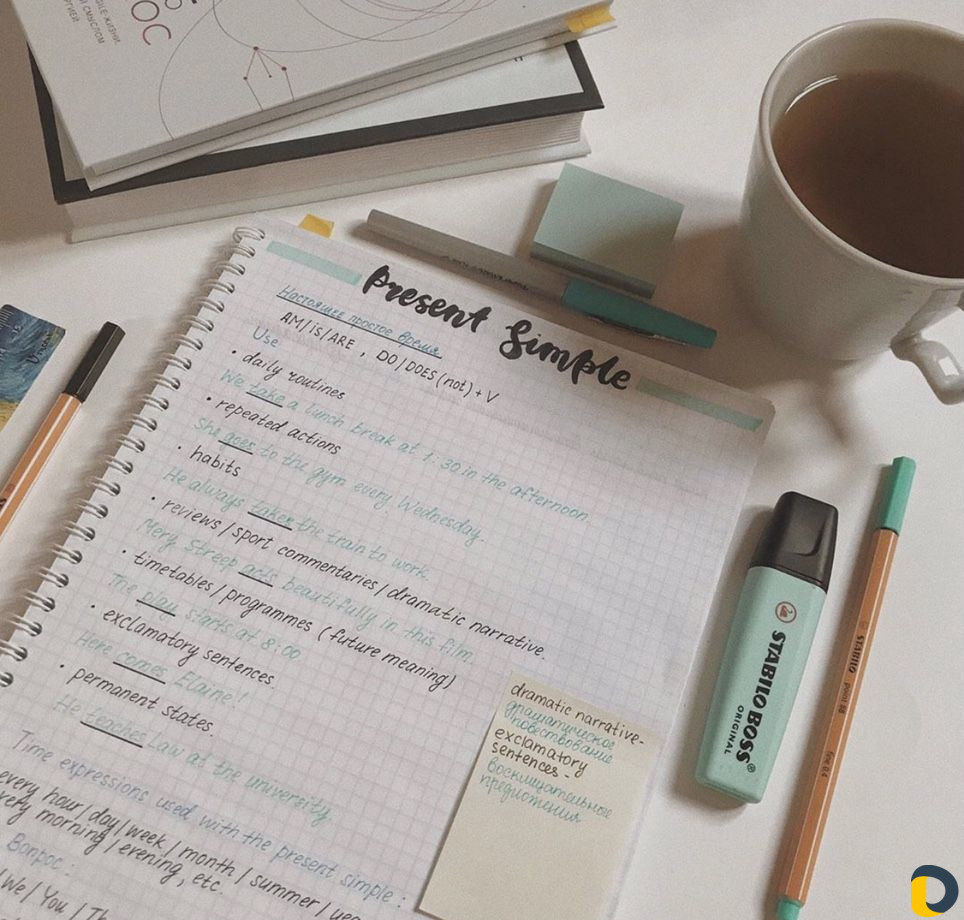 ОС
Present Simple
Настоящее простое время
AM/is/ARE, DO/DOES (not) + V
Use
• daily routines
We take a lunch break at 1:30 in the afternoon.
• repeated actions
She goes to the gym every Wednesday.
• habits
He always takes the train to work.
• reviews/sport commentaries/dramatic narrative.
Mery Streep acts beautifully in this film.
• timetables/programmes (future meaning)
The play starts at 8:00
• exclamatory sentences.
Here comes Elaine!
• permanent states.
He teaches Law at the university
Time expressions used with the present simple:
every hour/day/week/month/summer/
morning/evening, etc.
Вопрос:
We/You/
dramatic narrative-
драматическое
повествование
exclamatory
sentences-
восклицательные
предложения
STABILO BOSS®
ORIGINAL
STABILO
point 88
fine 0.4